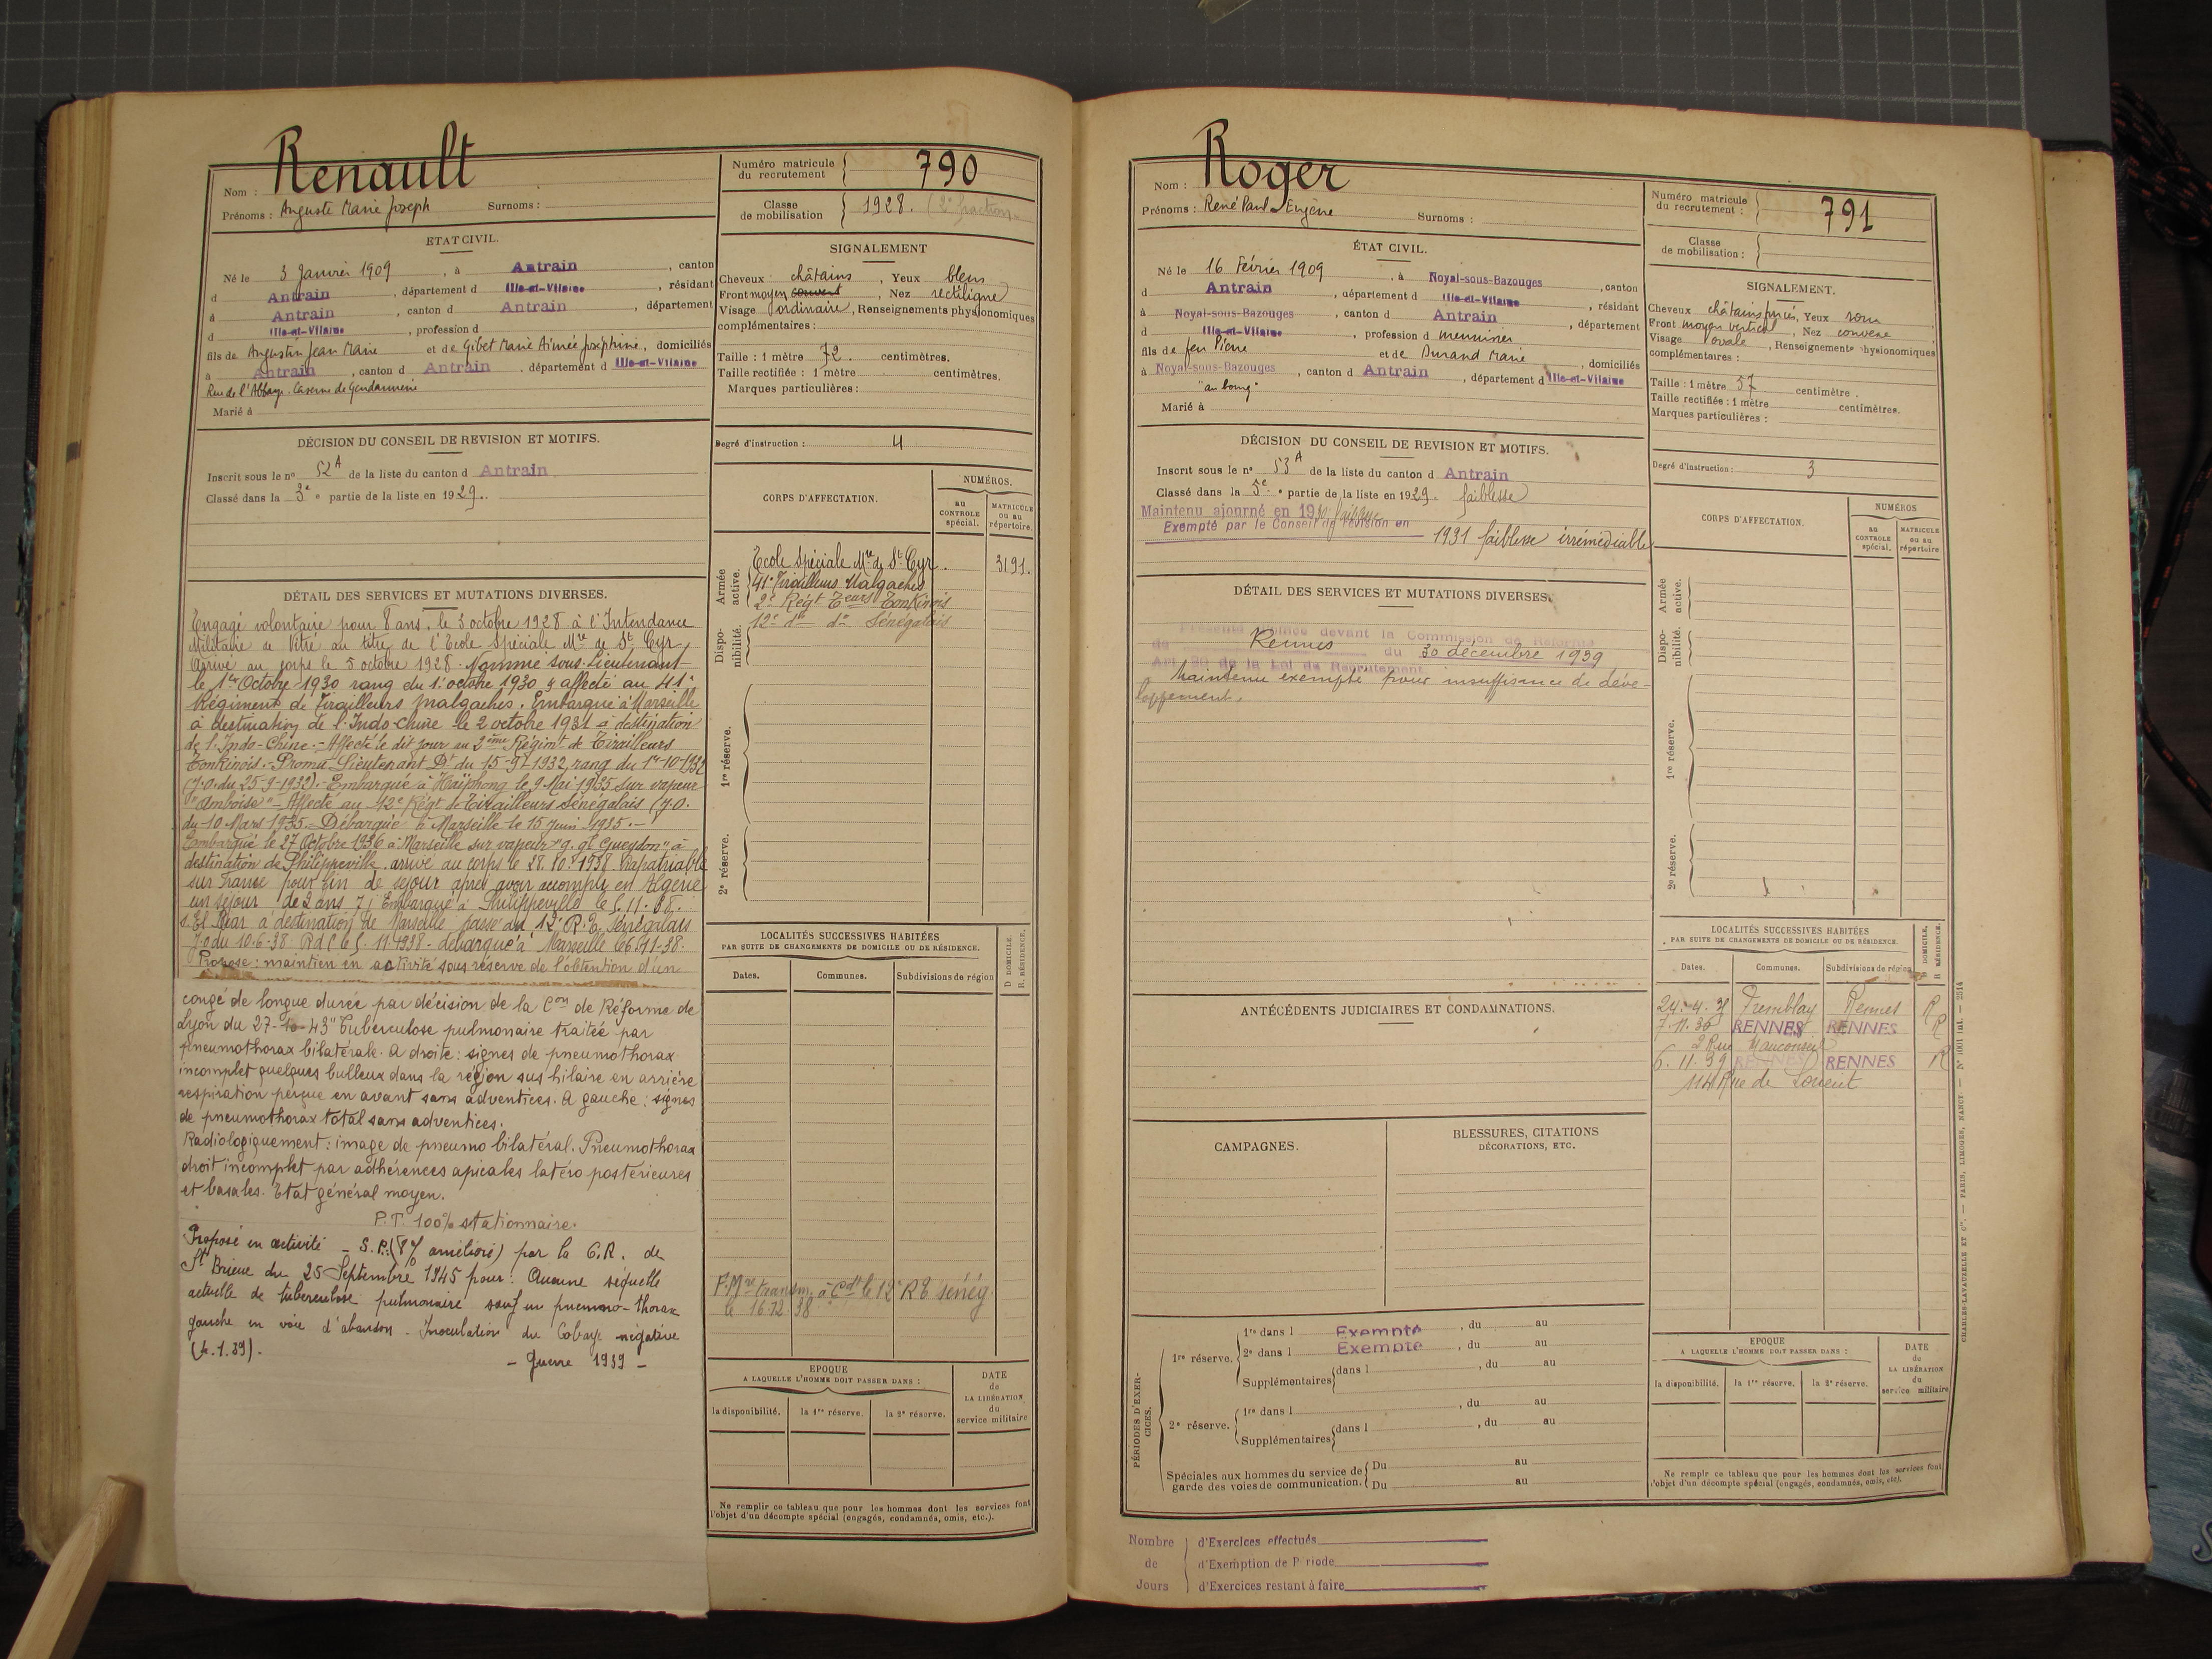 Renault
Nom :
Prénoms : Auguste Marie Joseph Surnoms :
Numéro matricule du recrutement 790
Classe de mobilisation 1928. (2e fraction
ETAT CIVIL.
Né le 3 Janvier 1909, à Antrain, canton
d Antrain, département d Ille-et-Vilaine, résidant
à Antrain, canton d Antrain, département
d Ille-et-Vilaine, profession d
fils de Augustin Jean Marie et de Gibet Marie Aimée Joséphine, domiciliés
à Antrain, canton d Antrain, département d Ille-et-Vilaine
Rue de l'Abbaye. Caserne de Gendarmerie
Marié à
SIGNALEMENT
Cheveux châtains, Yeux bleus
Front moyen convert, Nez rectiligne
Visage ordinaire, Renseignements physionomiques
complémentaires :
Taille : 1 mètre 72. centimètres.
Taille rectifiée : 1 mètre centimètres.
Marques particulières :
Degré d'instruction : 4
DÉCISION DU CONSEIL DE REVISION ET MOTIFS.
Inscrit sous le no 52A de la liste du canton d Antrain
Classé dans la 3e e partie de la liste en 1929.
CORPS D'AFFECTATION.
NUMÉROS.
au CONTROLE spécial.
MATRICULE ou au répertoire.
Armée active.
Ecole Spéciale Mre de St Cyr. 3191.
41e Tirailleurs Malgaches
2e Régt Teurs Tonkinois
12e do do Sénégalais
Disponibilité.
1re réserve.
2e réserve.
DÉTAIL DES SERVICES ET MUTATIONS DIVERSES.
Engagé volontaire pour 8 ans, le 3 octobre 1928 à l'Intendance
Militaire de Vitré au titre de l'Ecole Spéciale Mre de St Cyr,
Arrivé au corps le 5 octobre 1928. Nommé sous-Lieutenant
le 1er Octobre 1930 rang du 1er octobre 1930 & affecté au 41e
Régiment de Tirailleurs Malgaches. Embarqué à Marseille
à destination de l'Indo-Chine le 2 octobre 1931 à destination
de l'Indo-Chine.- Affecté le dit jour au 2ème Régimt de Tirailleurs
Tonkinois.- Promu Lieutenant Dt du 15-9-1932, rang du 1er-10-1932
(J.O. du 25-9-1932).- Embarqué à Haïphong le 9 Mai 1935 sur vapeur
"Amboise".- Affecté au 12e Régt de Tirailleurs Sénégalais (J.O.
du 10 Mars 1935.- Débarqué à Marseille le 15 Juin 1935.-
Embarqué le 27 Octobre 1936 à Marseille sur vapeur "g. gl Gueydon" à
destination de Philippeville. arrivé au corps le 28.10.1938. Rapatriable
sur France pour fin de séjour après avoir accompli en Algérie
un séjour de 2 ans 7j Embarqué à Philippeville le 5.11.38.
à destination de Marseille passé au 12e R.T. Sénégalais
J.O du 10.6-38 RdC le 5.11.1938- débarqué à Marseille le 6.11-38.
Proposé : maintien en activité sous réserve de l'obtention d'un
congé de longue durée par décision de la Con de Réforme de
Lyon du 27-10-43 "Tuberculose pulmonaire traitée par
pneumothorax bilatérale. A droite : signes de pneumothorax
incomplet quelques bulleux dans la région sus hilaire en arrière
respiration perçue en avant sans adventices. A gauche : signes
de pneumothorax total sans adventices.
Radiologiquement : image de pneumo bilatéral. Pneumothorax
droit incomplet par adhérences apicales latéro postérieures
et basales. Etat général moyen.
P.T. 100% stationnaire.
Proposé en activité - S.P. par la C.R. de
St Brieuc du 25 Septembre 1945 pour : Aucune séquelle
actuelle de tuberculose pulmonaire sauf un pneumo-thorax
gauche en voie d'abandon - Inoculation du Cobaye négative
- Guerre 1939 -
LOCALITÉS SUCCESSIVES HABITÉES
PAR SUITE DE CHANGEMENTS DE DOMICILE OU DE RÉSIDENCE.
Dates. Communes. Subdivisions de région D. DOMICILE. R. RÉSIDENCE.
F. Mre transm. à Cdt le 12e RT Sénég
le 16 12 38
EPOQUE
A LAQUELLE L'HOMME DOIT PASSER DANS :
la disponibilité. la 1re réserve. la 2e réserve.
DATE de LA LIBÉRATION du service militaire
Ne remplir ce tableau que pour les hommes dont les services font
l'objet d'un décompte spécial (engagés, condamnés, omis, etc.).
Roger
Nom :
Prénoms : René Paul Eugène Surnoms :
Numéro matricule du recrutement : 791
Classe de mobilisation :
ÉTAT CIVIL.
Né le 16 Février 1909, à Noyal-sous-Bazouges, canton
d Antrain, département d Ille-et-Vilaine, résidant
à Noyal-sous-Bazouges, canton d Antrain, département
d Ille-et-Vilaine, profession d menuisier
fils de feu Pierre et de Durand Marie, domiciliés
à Noyal-sous-Bazouges, canton d Antrain, département d Ille-et-Vilaine
"au bourg"
Marié à
SIGNALEMENT.
Cheveux châtains foncés, Yeux roux
Front moyen vertical, Nez convexe
Visage ovale, Renseignements physionomiques
complémentaires :
Taille : 1 mètre 57 centimètre.
Taille rectifiée : 1 mètre centimètres.
Marques particulières :
Degré d'instruction : 3
DÉCISION DU CONSEIL DE REVISION ET MOTIFS.
Inscrit sous le no 53A de la liste du canton d Antrain
Classé dans la 5e e partie de la liste en 1929. faiblesse
Maintenu ajourné en 1930 faiblesse
Exempté par le Conseil de révision en
1931 faiblesse irrémédiable
CORPS D'AFFECTATION.
NUMÉROS
au CONTROLE spécial.
MATRICULE ou au répertoire
Armée active.
Disponibilité.
1re réserve.
2e réserve.
DÉTAIL DES SERVICES ET MUTATIONS DIVERSES.
devant la Commission de Réforme
de Rennes du 30 décembre 1939
Art. 20 de la Loi de Recrutement
Maintenu exempté pour insuffisance de déve-
loppement.
ANTÉCÉDENTS JUDICIAIRES ET CONDAMNATIONS.
LOCALITÉS SUCCESSIVES HABITÉES
PAR SUITE DE CHANGEMENTS DE DOMICILE OU DE RÉSIDENCE.
Dates. Communes. Subdivisions de région D. DOMICILE. R. RÉSIDENCE.
24-4-35 Tremblay Rennes R
7.11.36 RENNES RENNES R
2 Rue Vauconseil
6.11.39 RENNES RENNES R
114 Rue de Lorient
CAMPAGNES.
BLESSURES, CITATIONS
DÉCORATIONS, ETC.
PÉRIODES D'EXERCICES.
1re réserve.
1re dans l Exempté, du au
2e dans l Exempté, du au
Supplémentaires dans l, du au
2e réserve.
1re dans l, du au
Supplémentaires dans l, du au
Spéciales aux hommes du service de
garde des voies de communication.
Du au
Du au
EPOQUE
A LAQUELLE L'HOMME DOIT PASSER DANS :
la disponibilité. la 1re réserve. la 2e réserve.
DATE de LA LIBÉRATION du service militaire
Ne remplir ce tableau que pour les hommes dont les services font
l'objet d'un décompte spécial (engagés, condamnés, omis, etc).
CHARLES-LAVAUZELLE ET Cie. — PARIS, LIMOGES, NANCY
Nombre de Jours
d'Exercices effectués
d'Exemption de Période
d'Exercices restant à faire